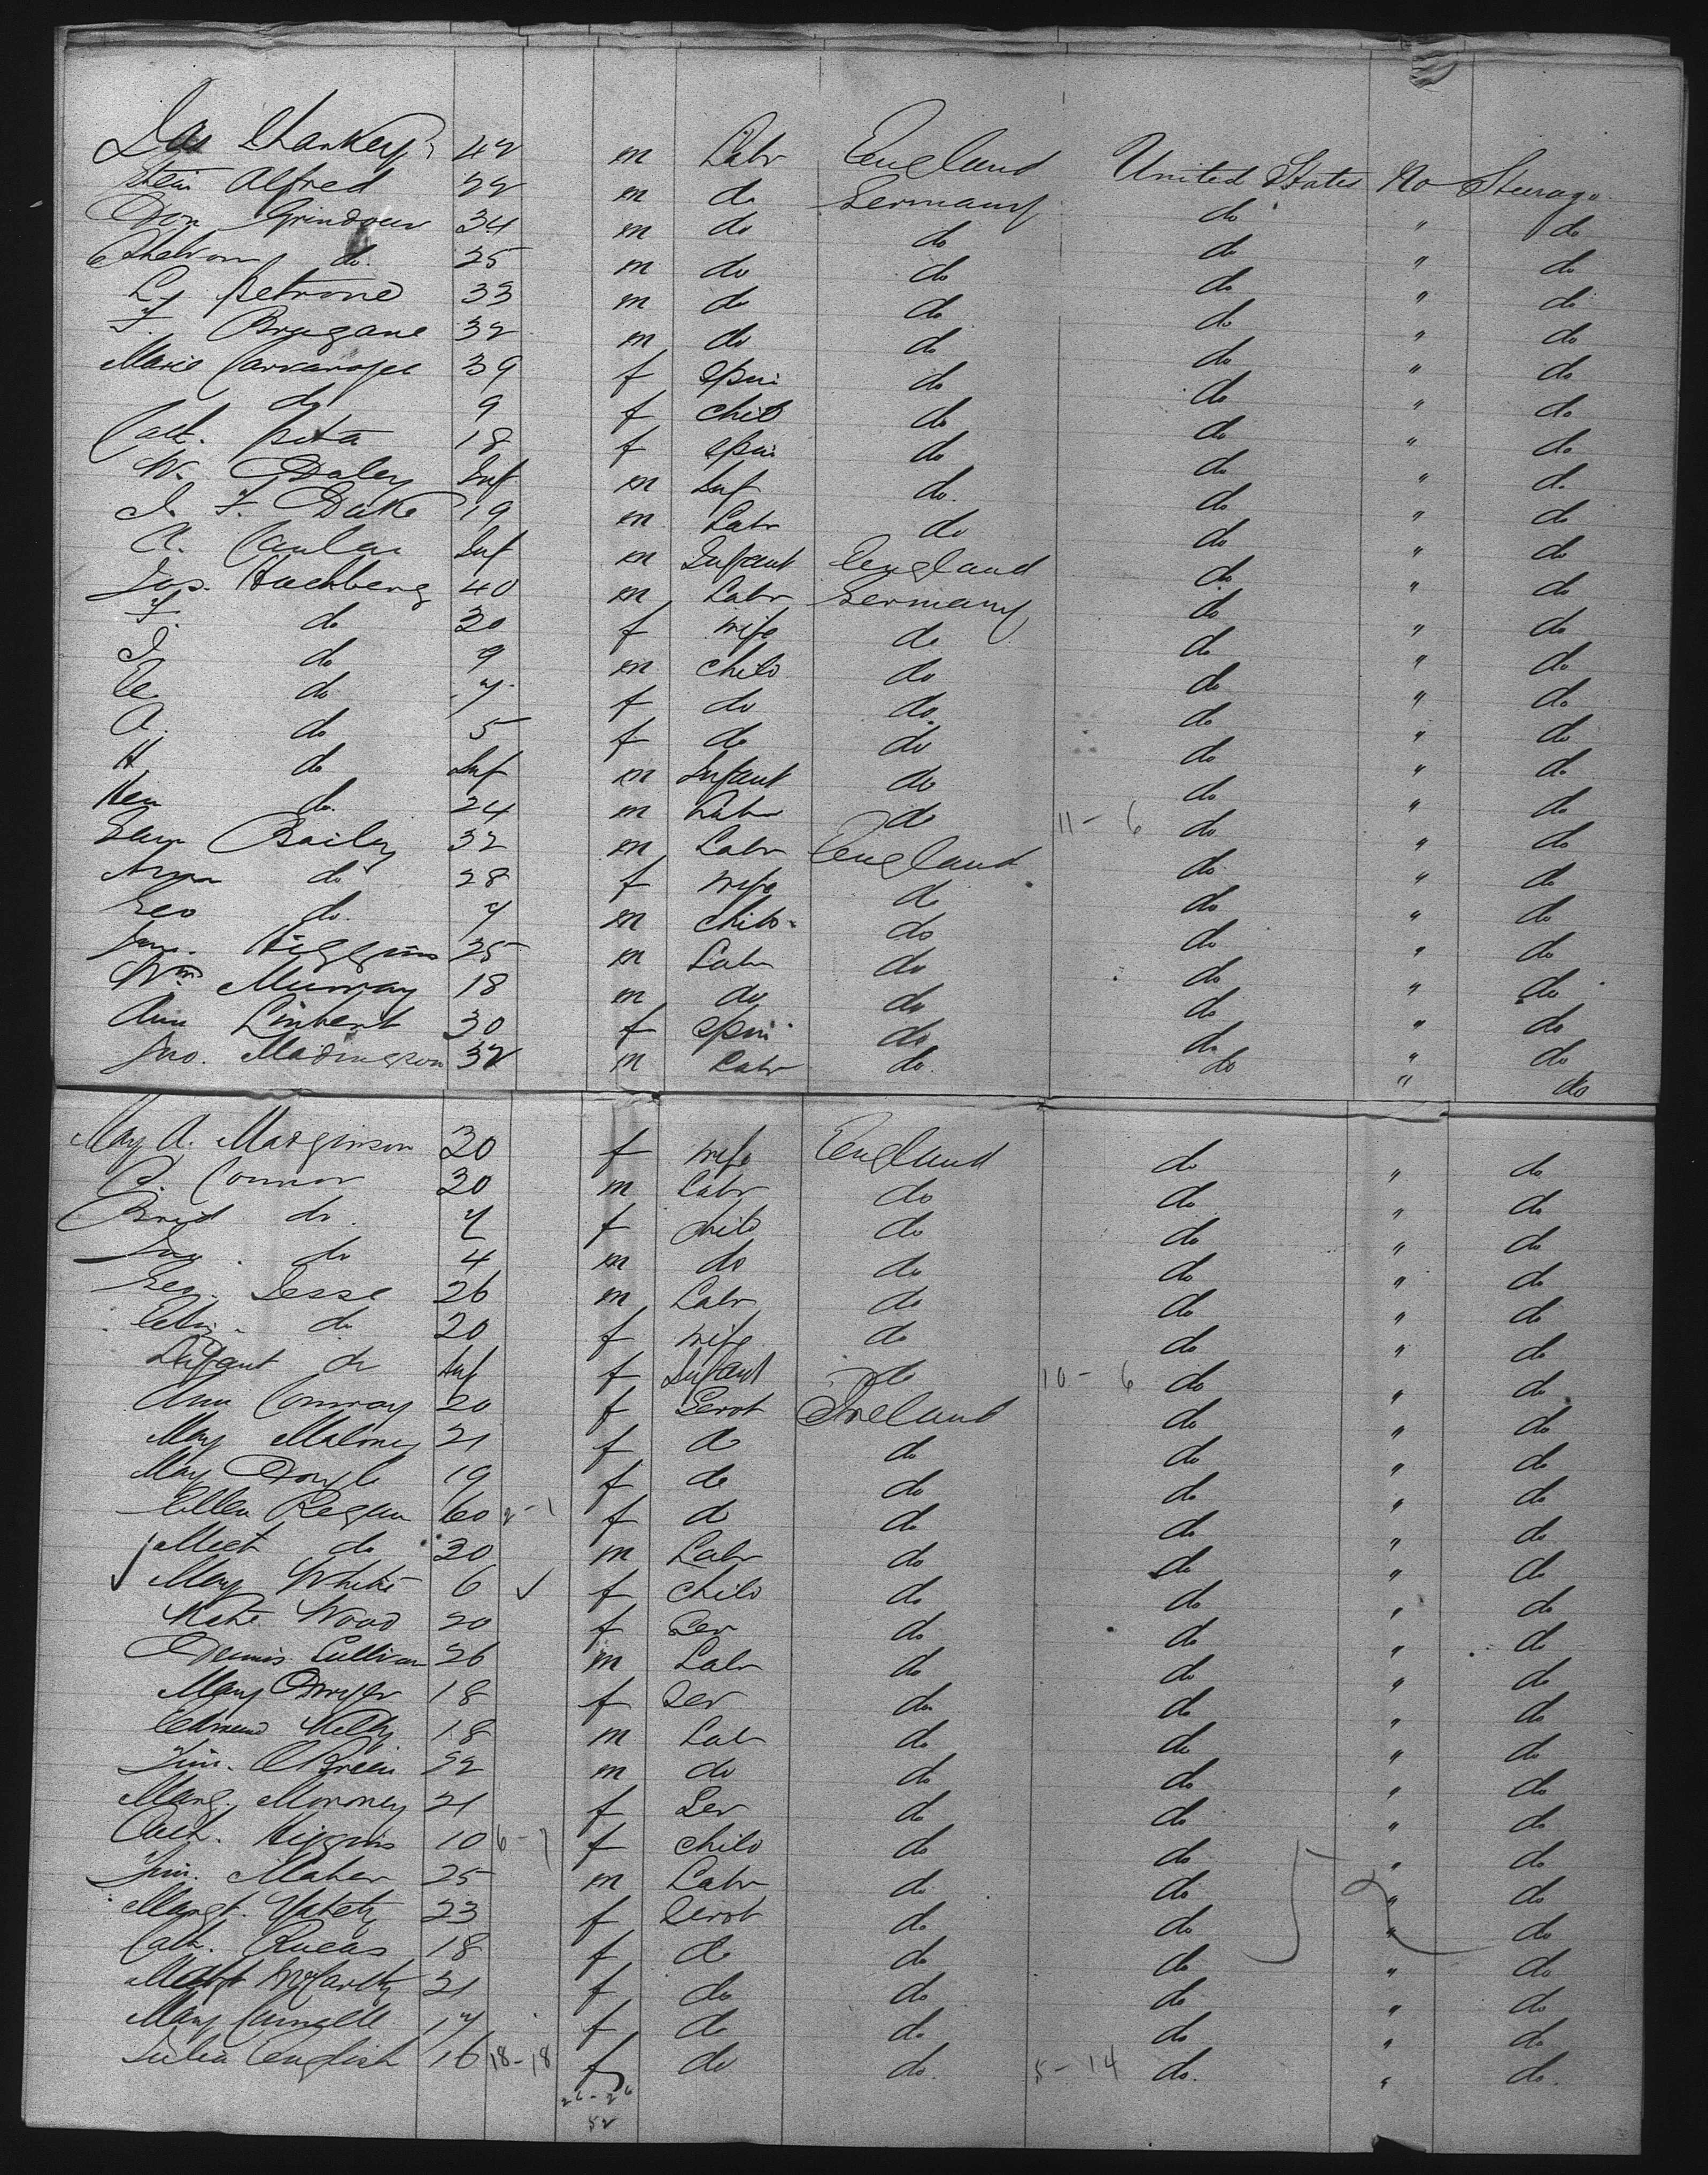 Jas Sharkey 42 m Labr England United States No Steerage
Stein Alfred 22 m do Germany do " do
Don Grindour 34 m do do do " do
do. 25 m do do do " do
L. Petrone 33 m do do do " do
F. Brugane 32 m do do do " do
Marie 39 f Spin do do " do
do 9 f Child do do " do
Cath. Pita 18 f Spin do do " do
W. Daley Inf m Inf do. do " do
J. F. Duke 19 m Labr do do " do
A. Inf m Infant England do " do
Jos. Hachberg 40 m Labr Germany do " do
F. do 30 f wife do do " do
J. do 9 m Child do do " do
E. do 7 f do do do " do
A. do 5 f do do do " do
H do Inf m Infant do do " do
Hen do. 24 m Labr do 11 - 6 do " do
Sam Bailey 32 m Labr England do " do
Anna do 28 f wife do do " do
Geo do. 7 m Child do do " do
Jno. Higgins 25 m Labr do do " do
Wm Murray 18 m do do do " do
Ann Limbert 30 f Spin do do " do
Jno. Madingson 32 m Labr do. do " do
May A. Marginson 30 f wife England do " do
P. Connor 30 m Labr do do " do
Brid do. 7 f child do do " do
Jno. do 4 m do do do " do
Geo. Jesse 26 m Labr do do " do
do 20 f wife do do " do
Infant do Inf f Infant do 10 - 6 do " do
Ann Conway 20 f Servt Ireland do " do
May Maloney 21 f do do do " do
May Doyle 19 f do do do " do
Ellen Regan 60 2 - 1 f do do do " do
Mich do 30 m Labr do do " do
Mary White 6 f Child do do " do
Kate Wood 20 f Ser do do " do
Dennis Sullivan 26 m Labr do do " do
Mary Dwyer 18 f Ser do do " do
Edmund Kelly 18 m Labr do do " do
Jim. OBrien 22 m do do do " do
Marg. Moroney 21 f Ser do do " do
Cath. Higgins 10 6 - 7 f child do do " do
Jim. Maher 25 m Labr do do 52 " do
Margt. 23 f Servt do do " do
Cath. Rueas 18 f do do do " do
Margt McCarthy 21 f do do do " do
Mary 17 f do do do " do
Julia English 16 18-18 f do do. 5 - 14 do. " do.
26-26
52